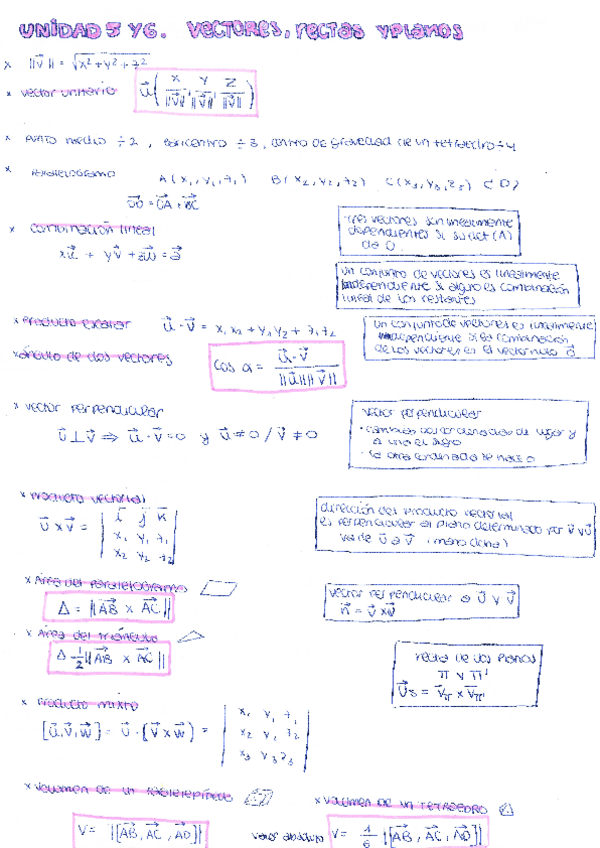 UNIDAD 5 Y 6. VECTORES, rectas y planos
x ||v⃗|| = √x²+y²+z²
x vector unitario u⃗ ( x/||v⃗||, y/||v⃗||, z/||v⃗|| )
x punto medio ÷2, baricentro ÷3, centro de gravedad de un tetraedro ÷4
x paralelogramo A(x₁,y₁,z₁) B(x₂,y₂,z₂) C(x₃,y₃,z₃) ¿D?
x combinación lineal
xu⃗ + yv⃗ + zw⃗ = a⃗
tres vectores son linealmente
dependientes si su det (A)
da 0.
un conjunto de vectores es linealmente
dependiente si alguno es combinación
lineal de los restantes
x producto escalar u⃗ · v⃗ = x₁x₂ + y₁y₂ + z₁z₂
un conjunto de vectores es linealmente
independiente si la combinación
de los vectores es el vector nulo 0⃗
x ángulo de dos vectores cos α = u⃗ · v⃗ / ||u⃗|| ||v⃗||
x vector perpendicular
u⃗ ⊥ v⃗ ⇒ u⃗ · v⃗ = 0 y u⃗ ≠ 0 / v⃗ ≠ 0
vector perpendicular
· cambias las coordenadas de lugar y
a una el signo
· la otra cordenada se hace 0
x producto vectorial
u⃗ x v⃗ = | i⃗ j⃗ k⃗ |
| x₁ y₁ z₁ |
| x₂ y₂ z₂ |
dirección del producto vectorial
es perpendicular al plano determinado por v⃗ y u⃗
va de u⃗ a v⃗ (mano dcha)
x Área del paralelogramo
Δ = ||AB⃗ x AC⃗||
vector perpendicular a u⃗ y v⃗
n⃗ = u⃗ x v⃗
x Área del triángulo
Δ = 1/2 ||AB⃗ x AC⃗||
recta de dos planos
π y π'
v⃗s = v⃗π x v⃗π'
x producto mixto
[u⃗,v⃗,w⃗] = u⃗ · (v⃗ x w⃗) = | x₁ y₁ z₁ |
| x₂ y₂ z₂ |
| x₃ y₃ z₃ |
x volumen de un paralelepípedo
x volumen de un TETRAEDRO
V = |[AB⃗, AC⃗, AD⃗]|
valor absoluto V = 1/6 |[AB⃗, AC⃗, AD⃗]|